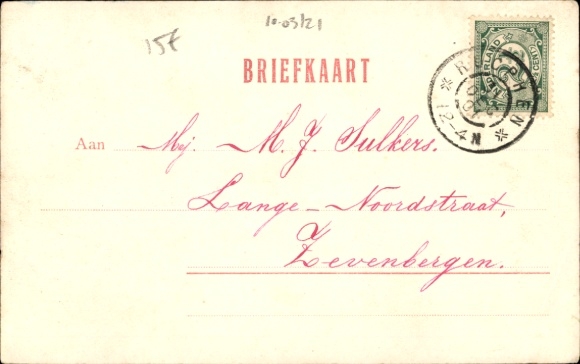 10-03/21
15€
BRIEFKAART
NEDERLAND
12-4N
Aan Mej. M. J. Sulkers.
Lange-Noordstraat,
Zevenbergen.